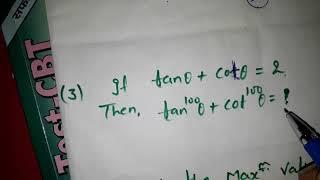 सफ
Test-CBT
(3) If tanθ + cotθ = 2.
Then, tan¹⁰⁰θ + cot¹⁰⁰θ = ?
the Maxᵐ Valu